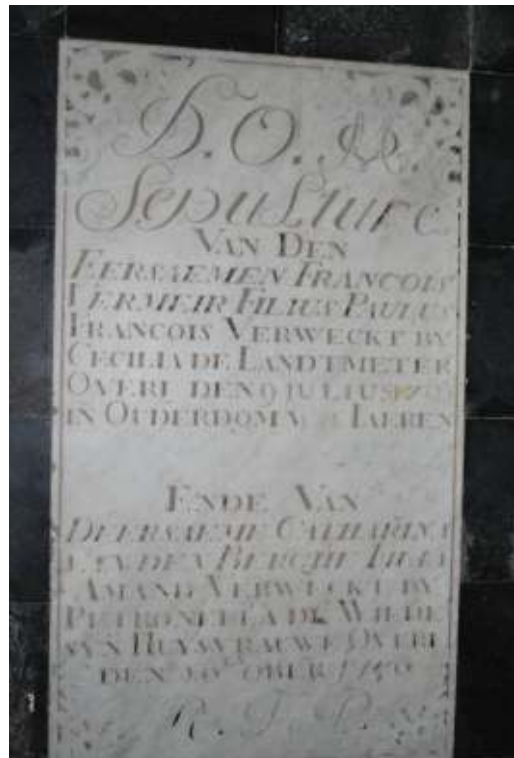 D. O. M.
Sepulture
VAN DEN
EERSAEMEN FRANCOIS
VERMEIR FILIUS PAULUS
FRANCOIS VERWECKT BY
CECILIA DE LANDTMETER
OVERL DEN 9 JULIUS
IN OUDERDOM V IAEREN
ENDE VAN
D'EERSAEME CATHARINA
VAN DEN BERGHE
AMAND VERWECKT BY
PETRONELLA DE WIEDE
SYN HUYSVRAUWE OVERL
DEN
R. I. P.